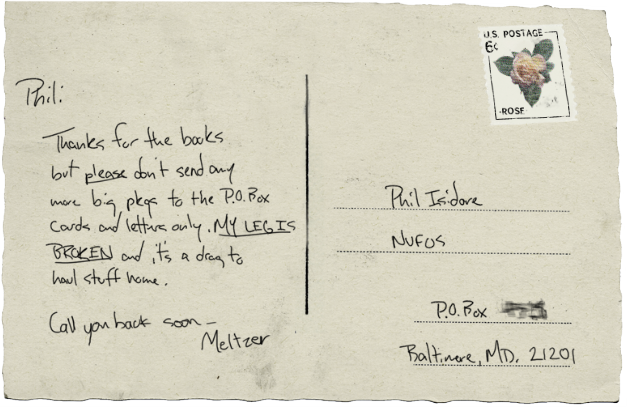 Phil:
Thanks for the books
but please don't send any
more big pkgs to the P.O. Box
Cards and letters only. MY LEG IS
BROKEN and it's a drag to
haul stuff home.
Call you back soon –
Meltzer
U.S. POSTAGE
6¢
ROSE
Phil Isidore
NUFOS
P.O. Box
Baltimore, MD. 21201